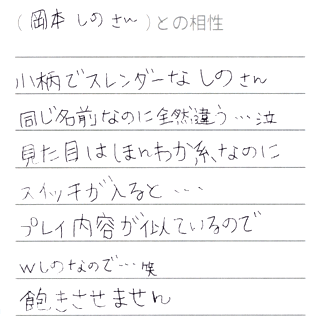 (岡本 しの さん)との相性
小柄でスレンダーな しの さん
同じ名前なのに全然違う…泣
見た目はほんわか系なのに
スイッチが入ると…
プレイ内容が似ているので
Wしのなので…笑
飽きさせません